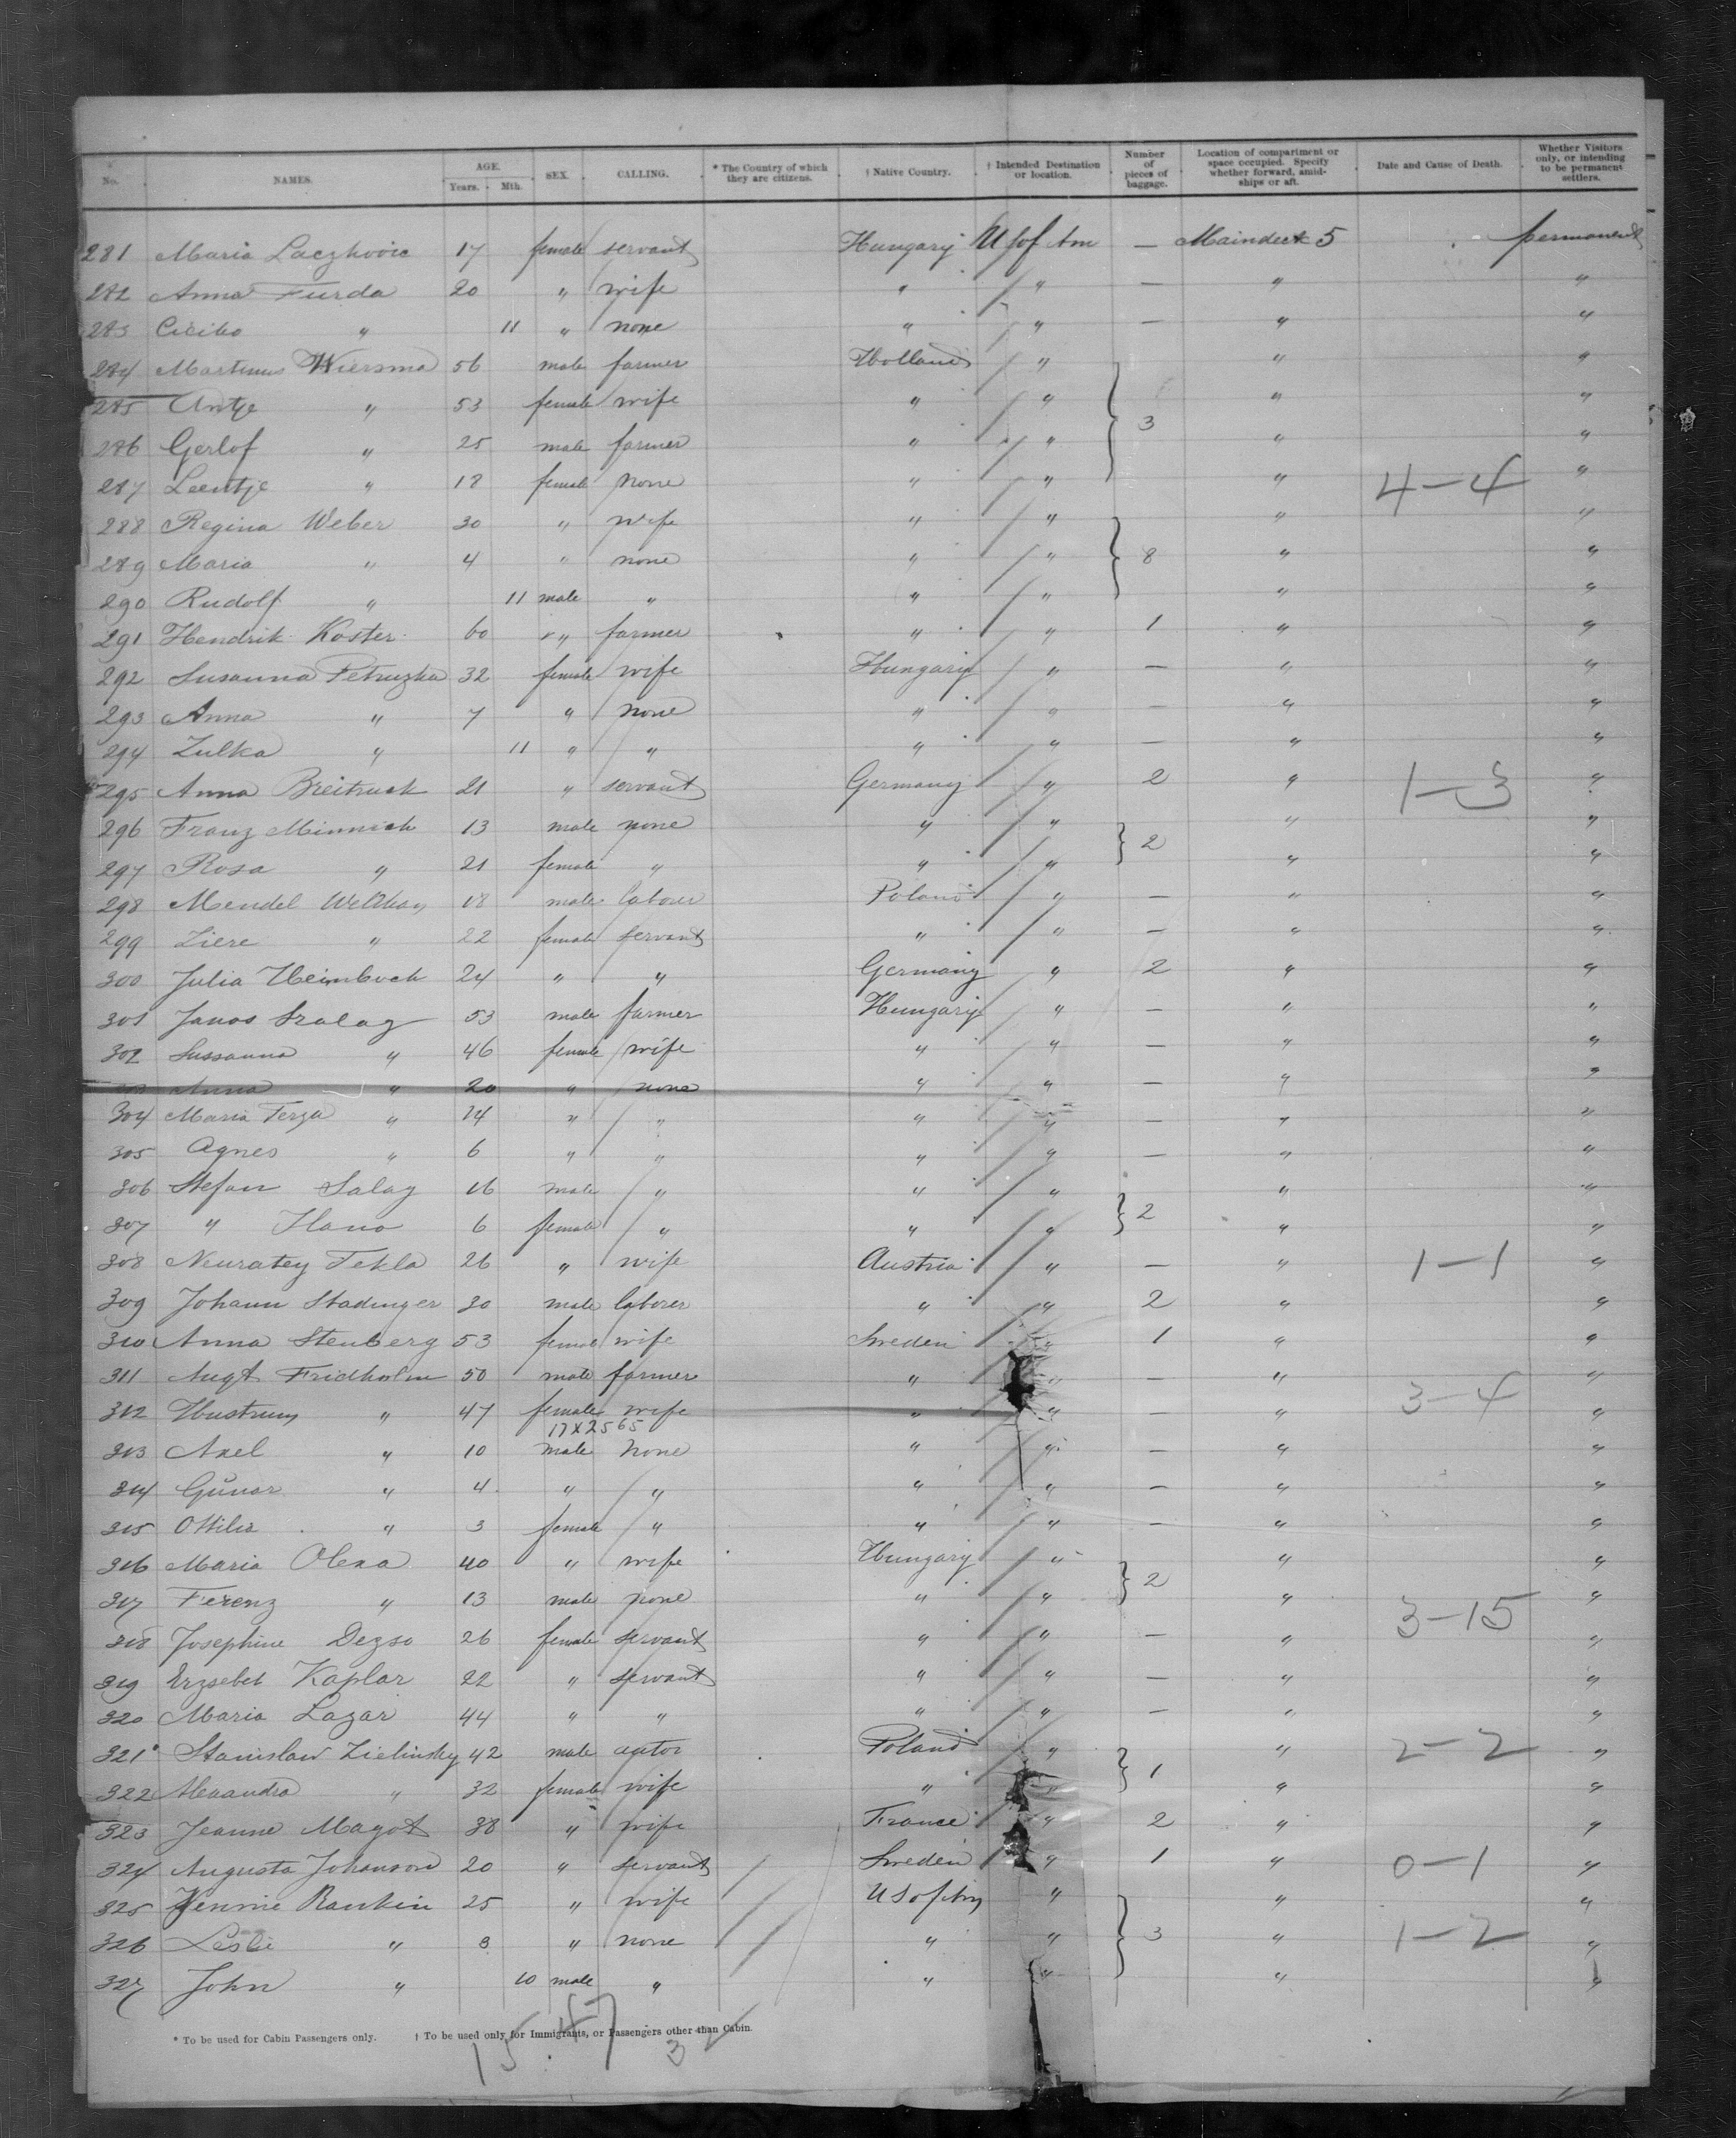 No. NAMES. AGE. Years. Mth. SEX. CALLING. * The Country of which they are citizens. † Native Country. † Intended Destination or location. Number of pieces of baggage. Location of compartment or space occupied. Specify whether forward, amidships or aft. Date and Cause of Death. Whether Visitors only, or intending to be permanent settlers.
281 Maria Laczkovic 17 female servant Hungary U S of Am — Maindeck 5 permanent
282 Anna Furda 20 " wife " " — " "
283 " 11 " none " " — " "
284 Martinus Wiersma 56 male farmer Holland " " "
285 Antje " 53 female wife " " " "
286 Gerlof " 25 male farmer " " 3 " "
287 Leentje " 18 female none " " " 4-4 "
288 Regina Weber 30 " wife " " " "
289 Maria " 4 " none " " 8 " "
290 Rudolf " 11 male " " " " "
291 Hendrik Koster 60 " farmer " " 1 " "
292 Susanna Petruzka 32 female wife Hungary " — " "
293 Anna " 7 " none " " — " "
294 Zulka " 11 " " " " — " "
295 Anna Breitruck 21 " servant Germany " 2 " 1-3 "
296 Franz Minnich 13 male none " " " "
297 Rosa " 21 female " " " 2 " "
298 Mendel 18 male laborer Poland " — " "
299 Ziere " 22 female servant " " — " "
300 Julia Heimbuch 24 " " Germany " 2 " "
301 Janos Szalay 53 male farmer Hungary " — " "
302 Sussanna " 46 female wife " " — " "
303 Anna " 20 " none " " — " "
304 Maria Terza " 14 " " " " — " "
305 Agnes " 6 " " " " — " "
306 Stefan Salay 16 male " " " " "
307 " Ilano 6 female " " " 2 " "
308 Neuratey Tekla 26 " wife Austria " — " 1-1 "
309 Johann Stadinger 30 male laborer " " 2 " "
310 Anna Stenberg 53 female wife Sweden " 1 " "
311 Augt Fridholm 50 male farmer " " — " 3-4 "
312 Hustrun " 47 female wife " " — " "
17X2565
313 Axel " 10 male none " " — " "
314 Gunar " 4 " " " " — " "
315 Ottilia " 3 female " " " — " "
316 Maria Olexa 40 " wife Hungary " " "
317 Ferenz " 13 male none " " 2 " 3-15 "
318 Josephine Dezso 26 female servant " " — " "
319 Erzsebet Kaplar 22 " servant " " — " "
320 Maria Lazar 44 " " " " — " "
321 Stanislaw Zielinsky 42 male actor Poland " " 2-2 "
322 Alexandra " 32 female wife " " 1 " "
323 Jeanne Magot 38 " wife France " 2 " "
324 Augusta Johanson 20 " servant Sweden " 1 " 0-1 "
325 Jennie Rankin 25 " wife U S of Am " " "
326 Leslie " 3 " none " " 3 " 1-2 "
327 John " 10 male " " " " "
* To be used for Cabin Passengers only. † To be used only for Immigrants, or Passengers other than Cabin.
15 47 32